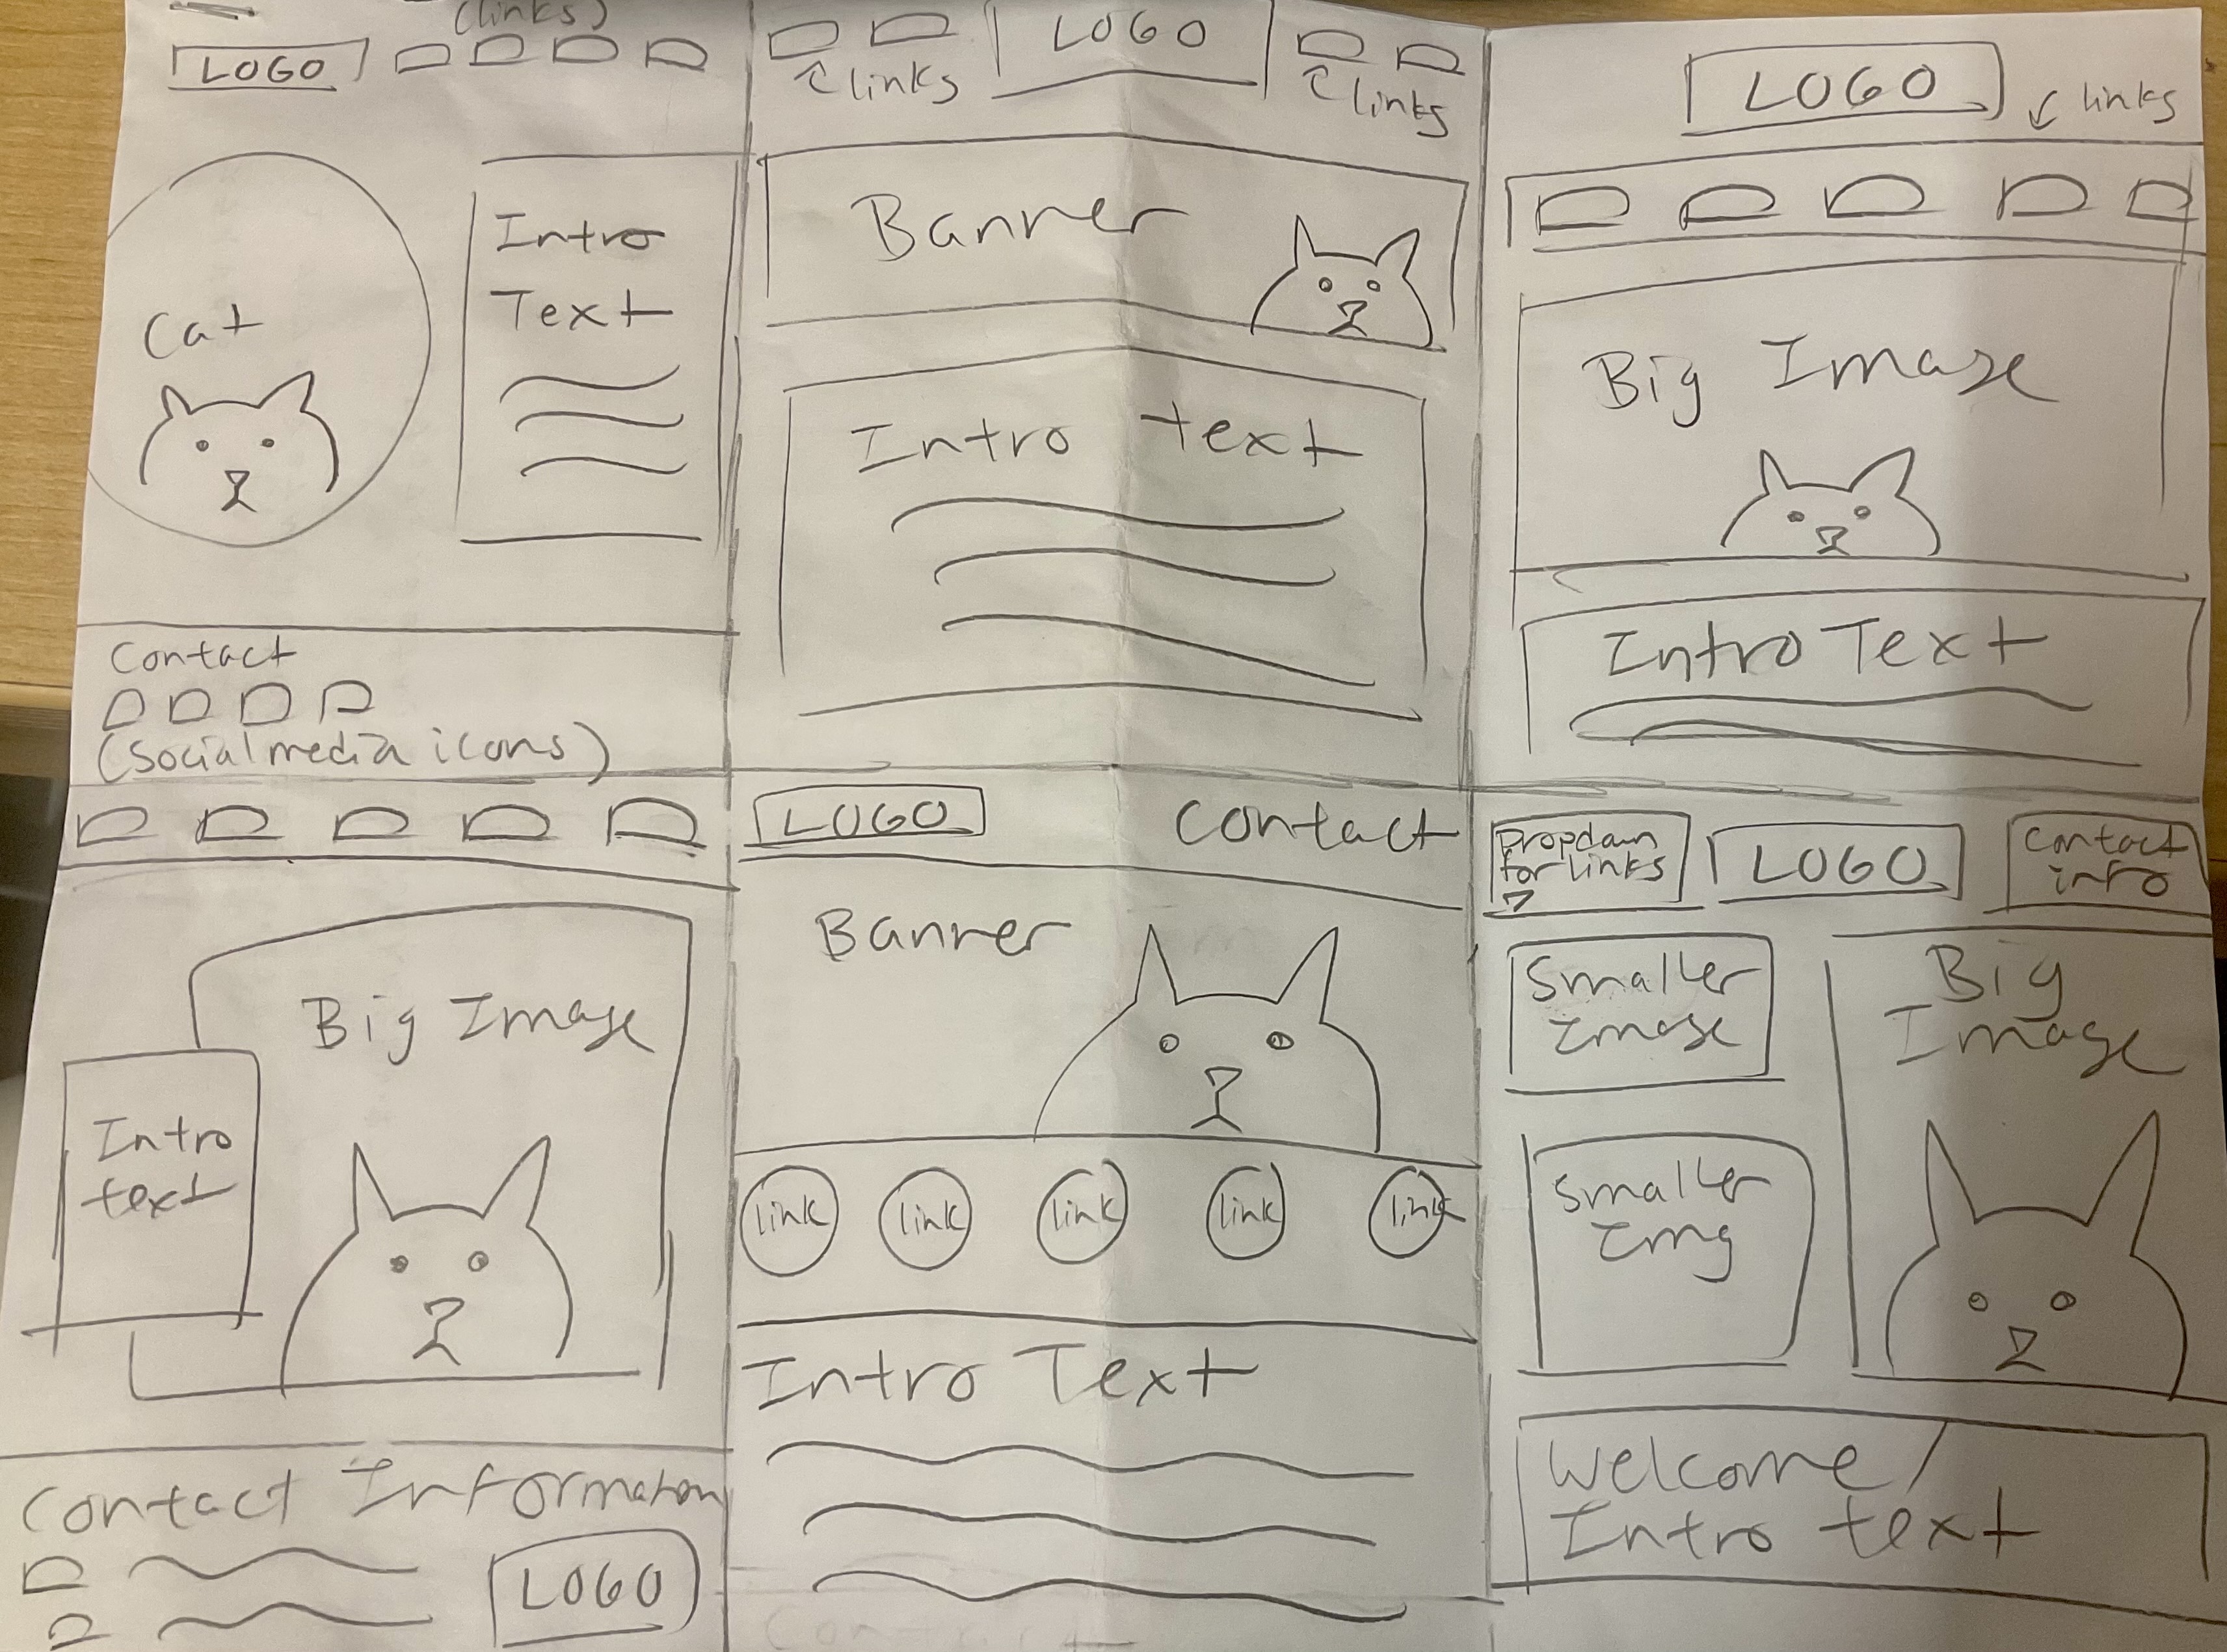 (links)
LOGO
Cat
Intro
Text
Contact
(Social media icons)
LOGO
links
links
Banner
Intro text
LOGO
links
Big Image
Intro Text
Big Image
Intro
text
Contact Information
LOGO
LOGO
Contact
Banner
link link link link link
Intro Text
Dropdown
for links
LOGO
Contact
info
Smaller
Image
Big
Image
Smaller
Img
Welcome/
Intro text